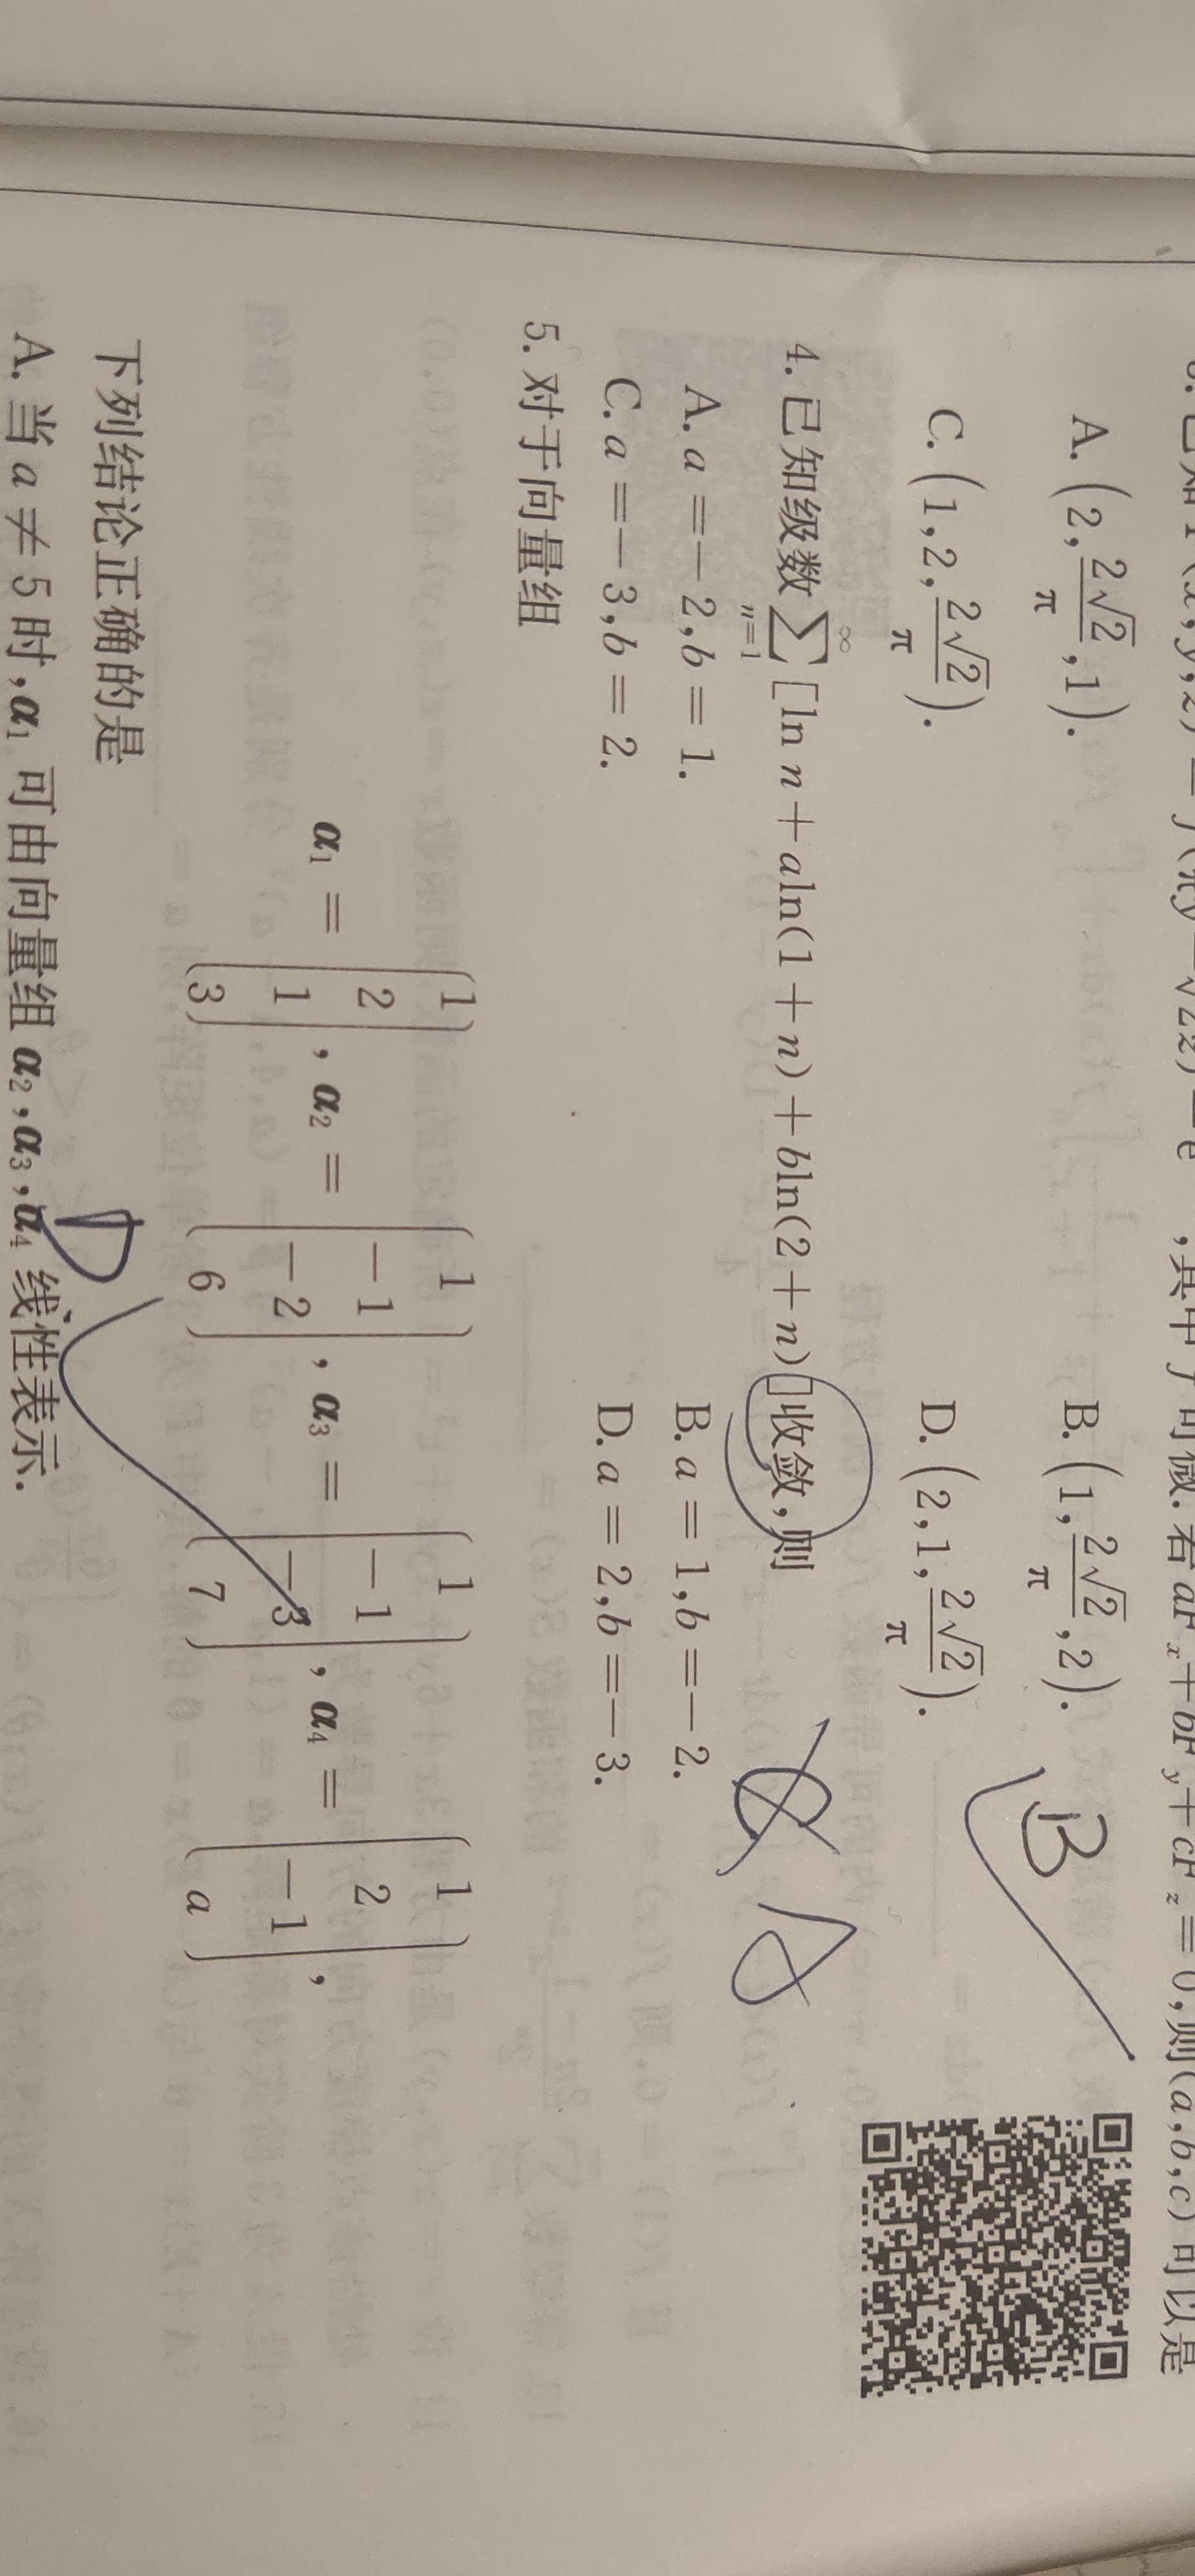 3. 已知 F(x,y,z) = f(πy − √2z) − e ,其中 f 可微.若 aFₓ + bF_y + cF_z = 0,则(a,b,c)可以是
A. (2, 2√2/π, 1). B. (1, 2√2/π, 2). B
C. (1, 2, 2√2/π). D. (2, 1, 2√2/π).
4. 已知级数 ∑_{n=1}^{∞} [ln n + aln(1 + n) + bln(2 + n)]收敛,则
A. a = −2,b = 1. B. a = 1,b = −2.
C. a = −3,b = 2. D. a = 2,b = −3.
5. 对于向量组
α₁ = (1, 2, 1, 3), α₂ = (1, −1, −2, 6), α₃ = (1, −1, −3, 7), α₄ = (1, 2, −1, a),
下列结论正确的是 D
A. 当 a ≠ 5 时,α₁ 可由向量组 α₂,α₃,α₄ 线性表示.